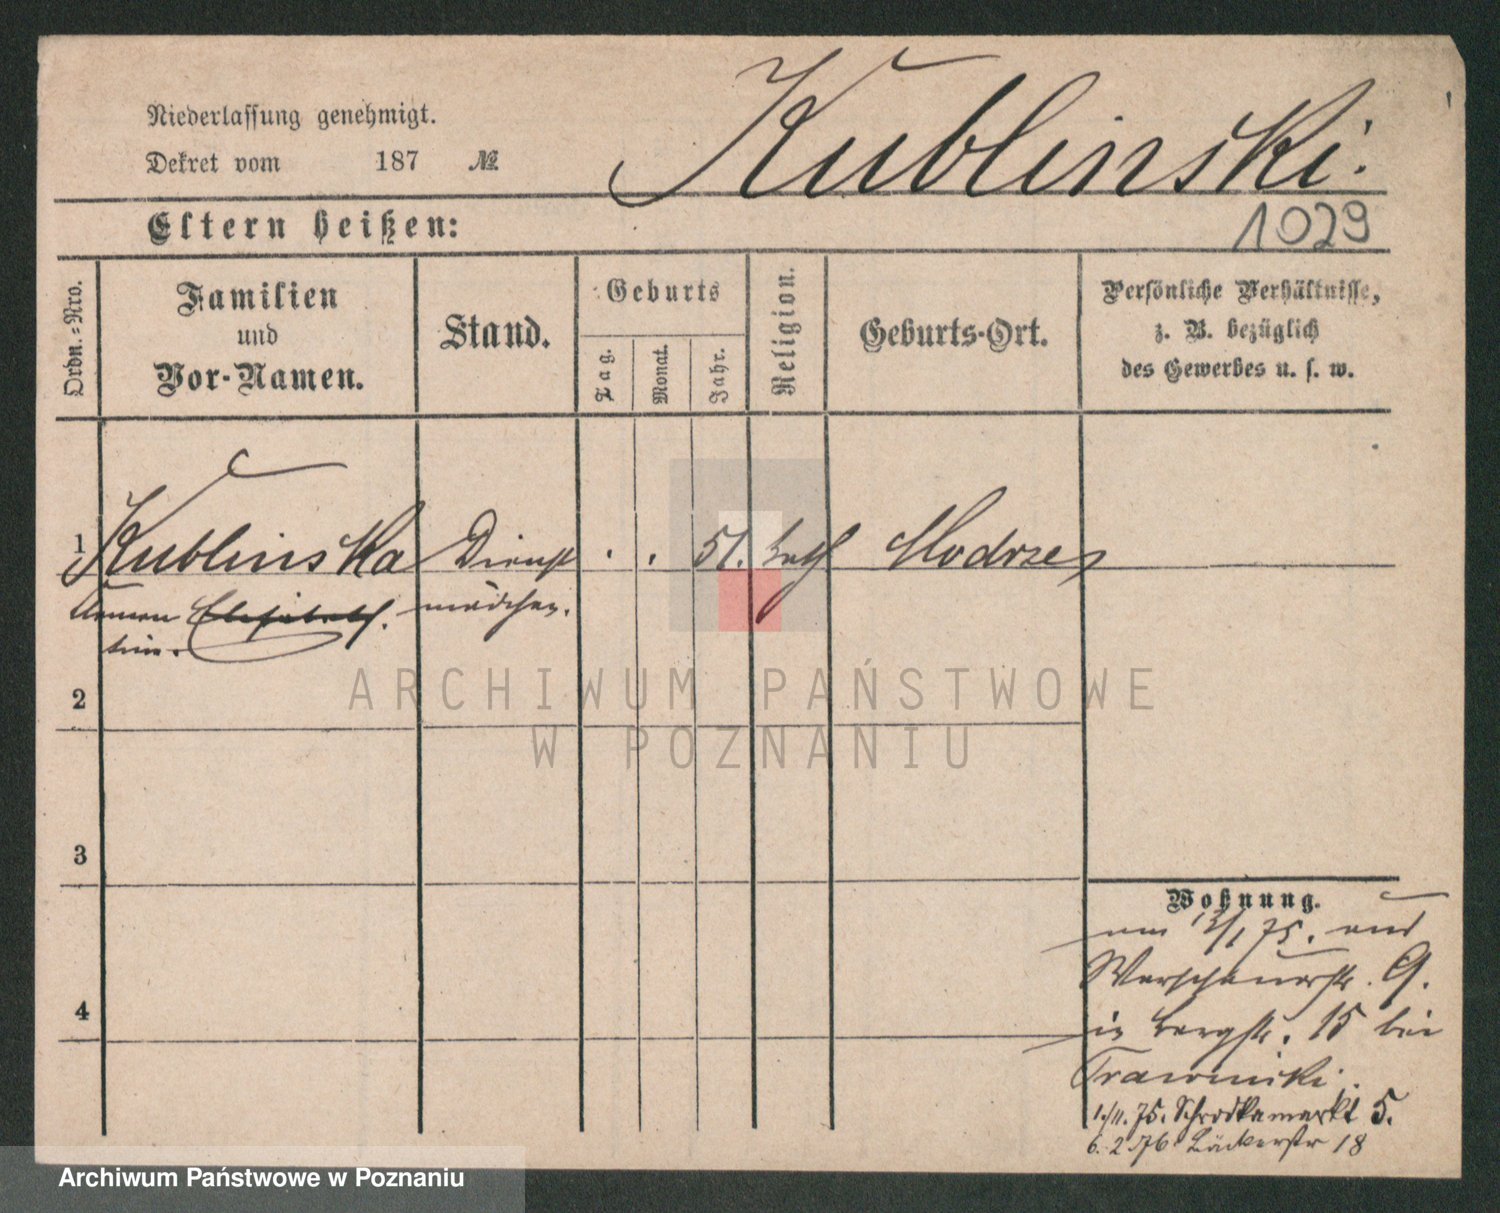 Niederlassung genehmigt.
Dekret vom 187 №
Kublinski.
Eltern heißen:
1029
Ordn.=Nro.
Familien
und
Vor-Namen.
Stand.
Geburts
Tag.
Monat.
Jahr.
Religion.
Geburts-Ort.
Persönliche Verhältnisse,
z. B. bezüglich
des Gewerbes u. s. w.
1 Kublinska Dienst . . 51. kath Modrze
Elisabeth. mädchen.
2
3
4
ARCHIWUM PAŃSTWOWE
W POZNANIU
Wohnung.
am /1 75. aus
Warschauerstr. 9.
in Bergstr. 15 bei
1./11. 75. Schrodkamarkt 5.
6. 2 76 Bäckerstr 18
Archiwum Państwowe w Poznaniu